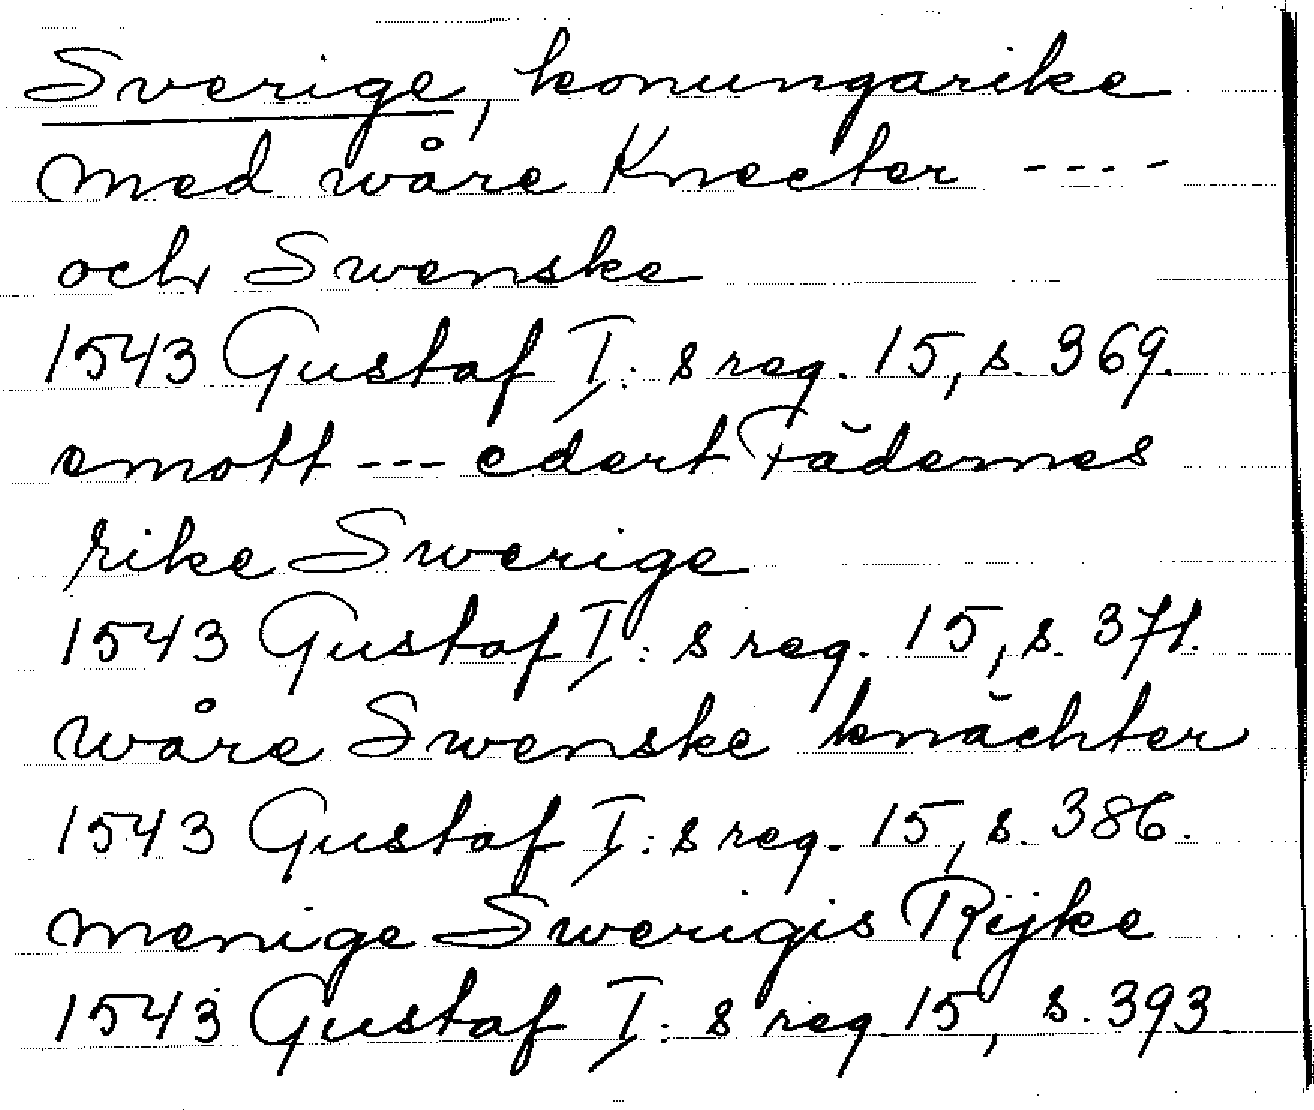 Sverige, konungarike
med wåre Knecter ----
och Swenske
1543 Gustaf I:s reg. 15, s. 369.
emott --- edert Fädernes
rike Swerige
1543 Gustaf I:s reg. 15, s. 371.
wåre Swenske knächter
1543 Gustaf I:s reg. 15, s. 386.
menige Swerigis Rijke
1543 Gustaf I:s reg 15, s. 393